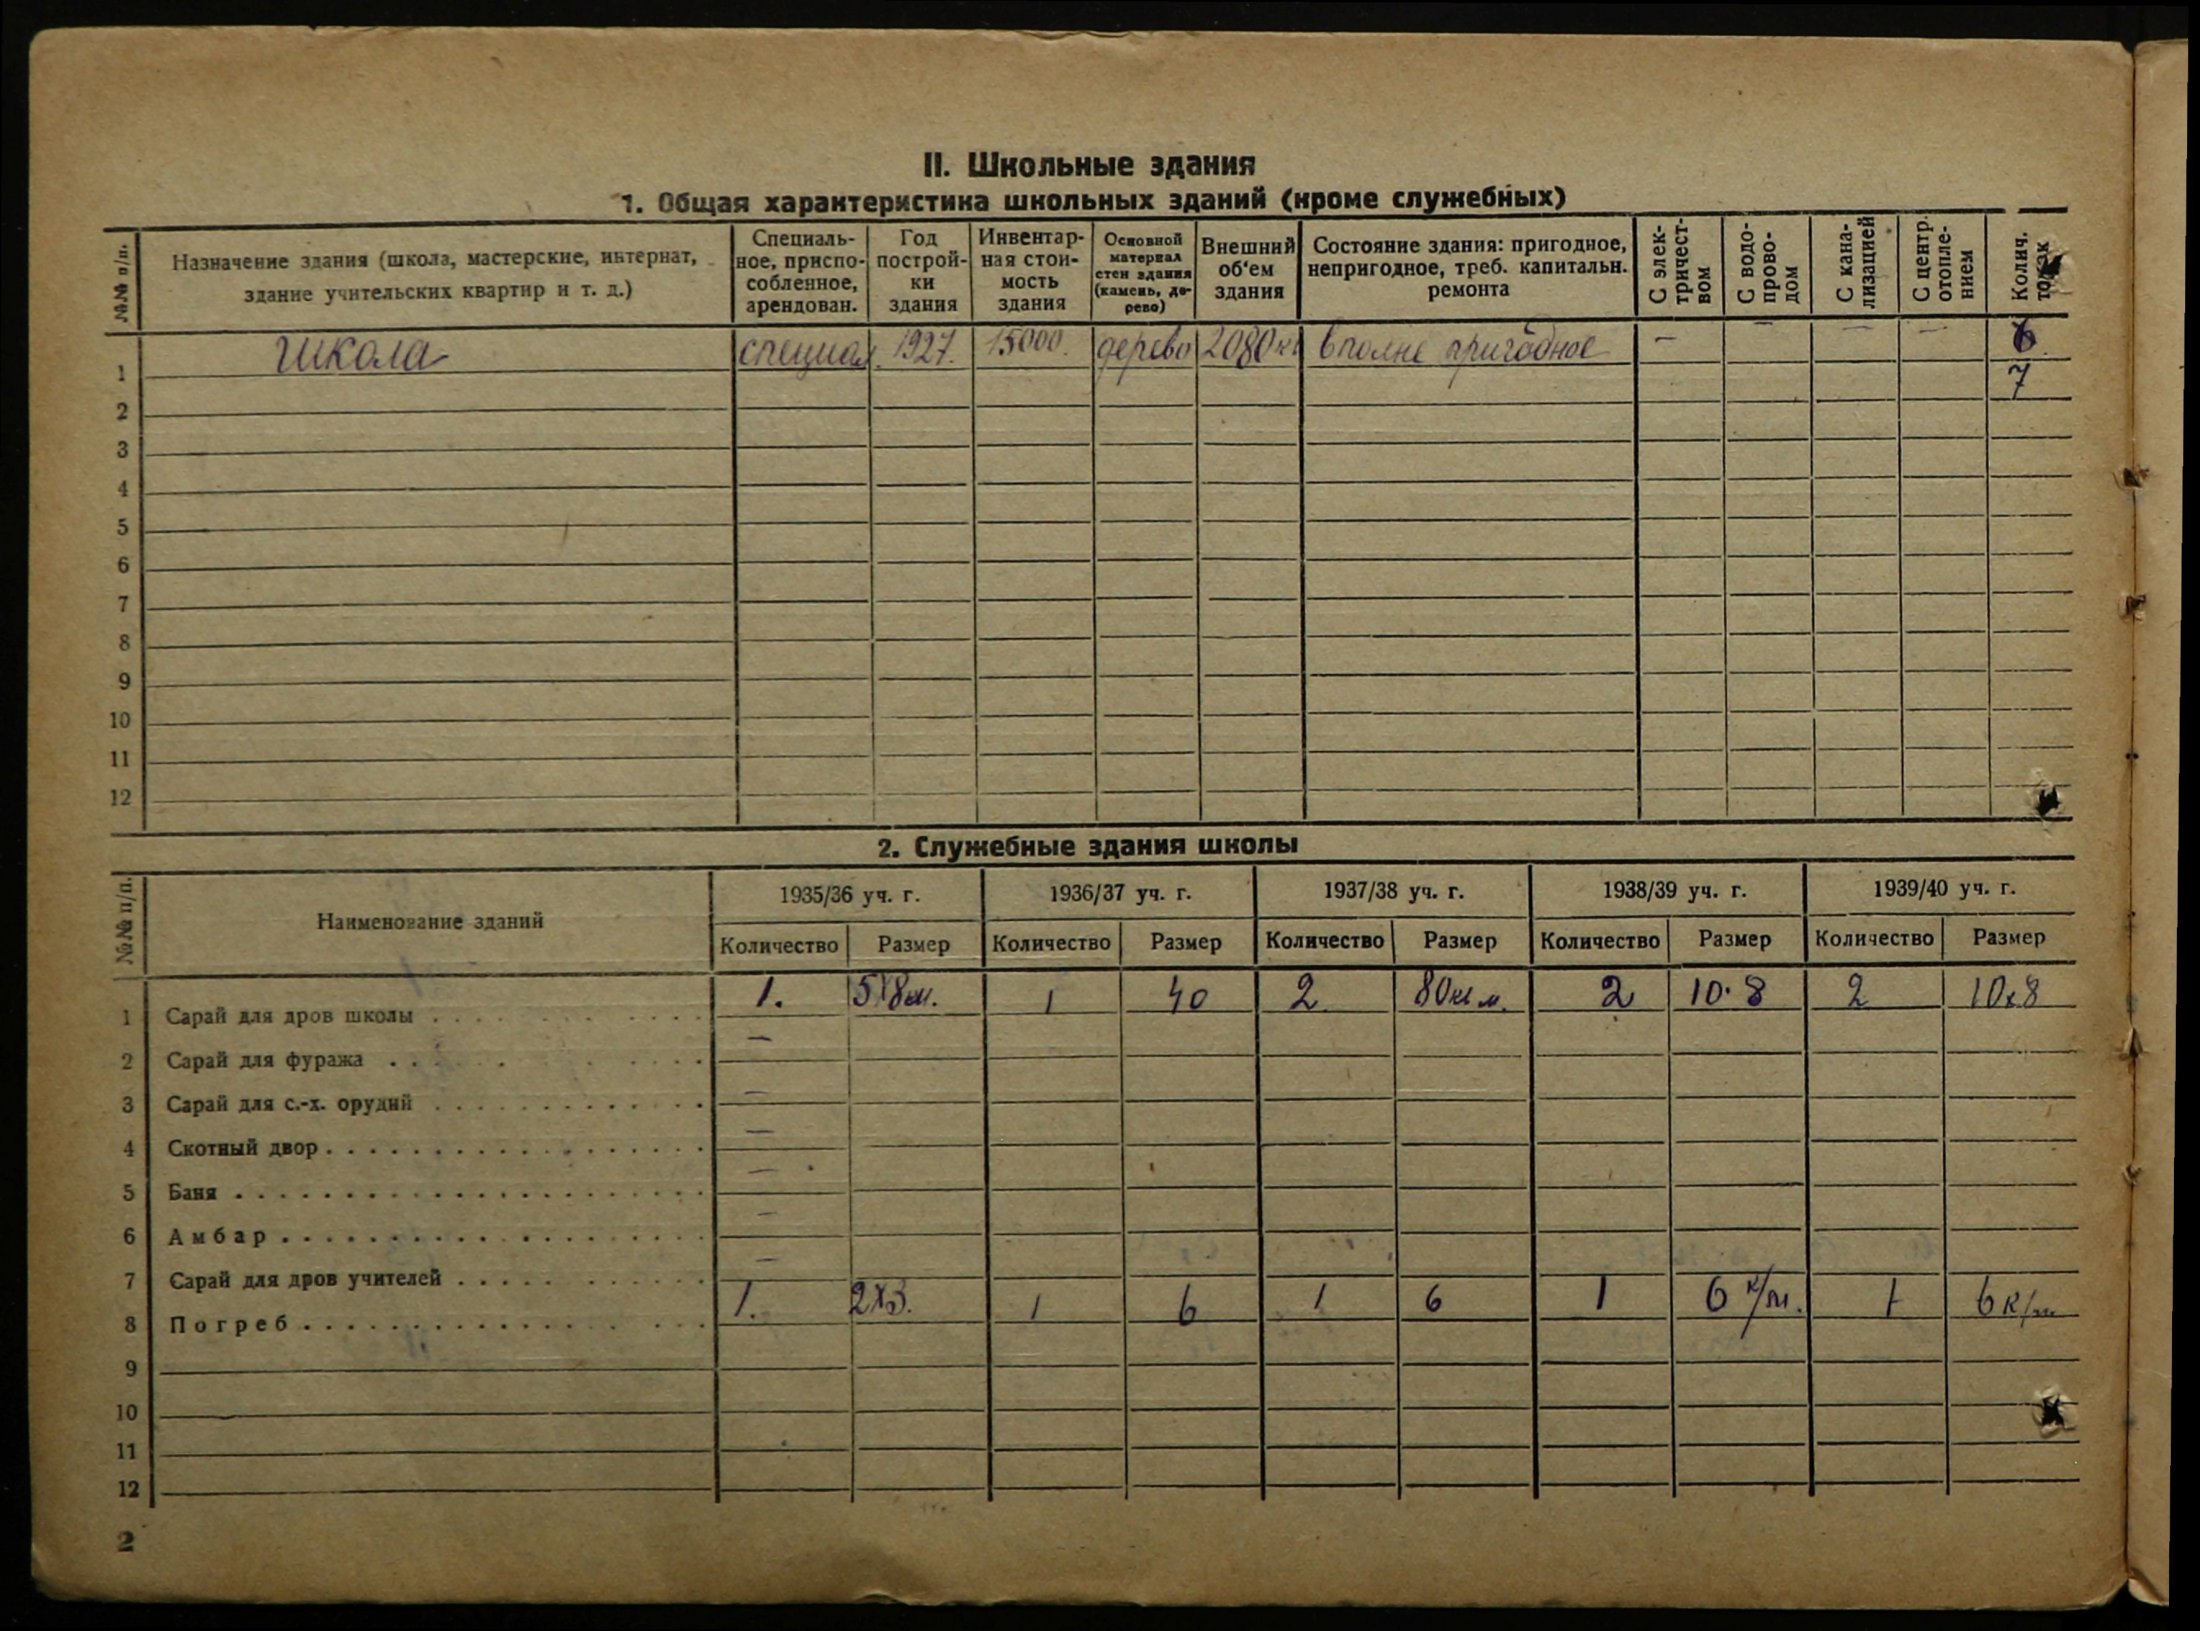 II. Школьные здания
1. Общая характеристика школьных зданий (кроме служебных)
№№ п/п. Назначение здания (школа, мастерские, интернат, здание учительских квартир и т. д.) Специаль-ное, приспо-собленное, арендован. Год построй-ки здания Инвентар-ная стои-мость здания Основной материал стен здания (камень, де-рево) Внешний об'ем здания Состояние здания: пригодное, непригодное, треб. капитальн. ремонта С элек-тричест-вом С водо-прово-дом С кана-лизацией С центр. отопле-нием Колич.
1 Школа специал. 1927. 15000. дерево 2080 вполне пригодное — — — — 6
2 7
3
4
5
6
7
8
9
10
11
12
2. Служебные здания школы
№№ п/п. Наименование зданий 1935/36 уч. г. 1936/37 уч. г. 1937/38 уч. г. 1938/39 уч. г. 1939/40 уч. г.
Количество Размер Количество Размер Количество Размер Количество Размер Количество Размер
1 Сарай для дров школы 1. 5х8м. 1 40 2 80кв м. 2 10·8 2 10х8
2 Сарай для фуража —
3 Сарай для с.-х. орудий —
4 Скотный двор —
5 Баня —
6 Амбар —
7 Сарай для дров учителей —
8 Погреб 1. 2х3. 1 6 1 6 1 6 к/м. 1 6 к/м.
9
10
11
12
2